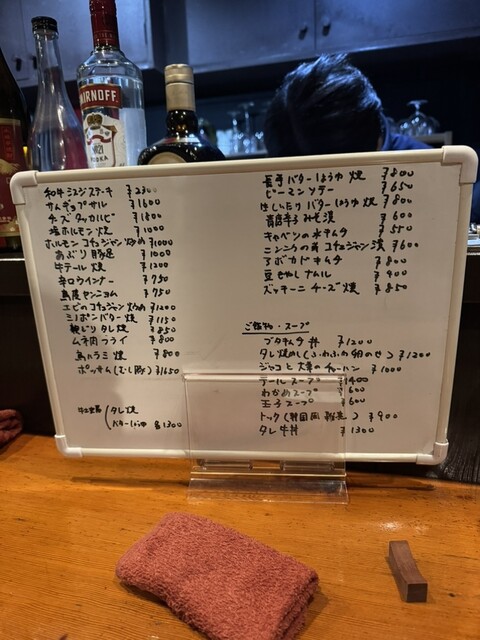 SMIRNOFF
No21
VODKA
和牛ミスジステーキ ¥2300
サムギョプサル ¥1600
チーズタッカルビ ¥1800
塩ホルモン焼 ¥1000
ホルモンコチュジャン炒め ¥1000
あぶり豚足 ¥1000
牛テール焼 ¥1200
辛口ウインナー ¥750
¥950
エビのコチュジャン炒め ¥1200
バター焼 ¥1150
タレ焼 ¥850
ムネ肉フライ ¥800
鳥ハラミ焼 ¥800
ポッサム(むし豚) ¥1650
タレ焼
バターしょうゆ 各¥1300
長芋バターしょうゆ焼 ¥800
ピーマン ¥650
しいたけバターしょうゆ焼 ¥800
青唐辛子みそ漬 ¥600
キャベツの水キムチ ¥500
ニンニクの芽コチュジャン漬 ¥600
アボカドキムチ ¥800
豆もやしナムル ¥400
ズッキーニチーズ焼 ¥850
ご飯もの・スープ
ブタキムチ丼 ¥1200
タレ焼めし(ふわふわ卵のせ) ¥1200
ジャコと大葉のチャーハン ¥1000
テールスープ ¥1400
わかめスープ ¥600
玉子スープ ¥600
トック(韓国風雑煮) ¥900
タレ牛丼 ¥1300